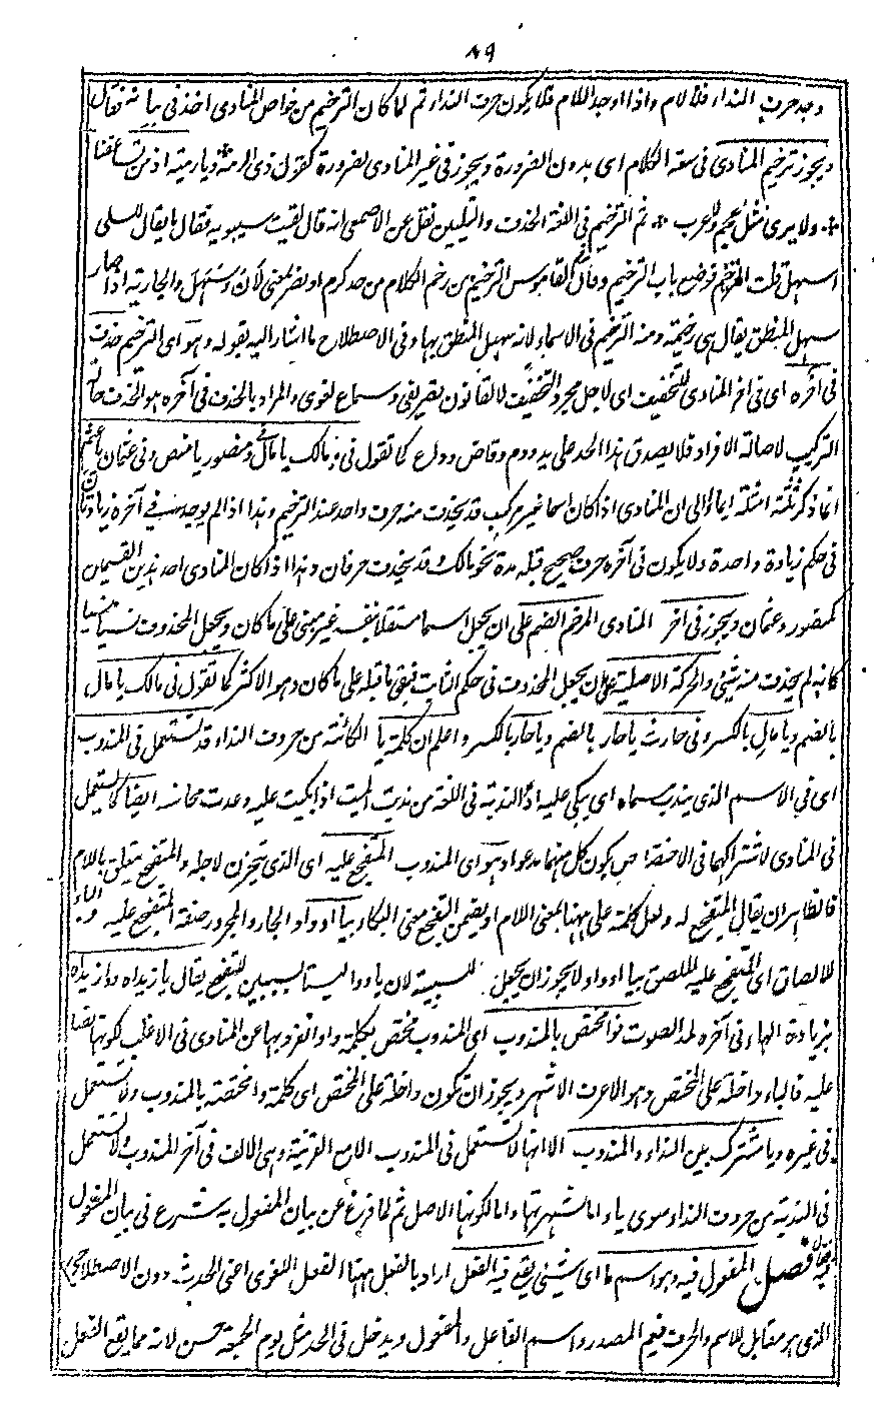 ٨٩
وجد حرف النداء فلا لام واذا وجد اللام فلا يكون حرف النداء ثم لما كان الترخيم من خواص المنادى اخذ فى بيانه فقال
ويجوز ترخيم المنادى فى سعة الكلام اى بدون الضرورة ويجوز فى غير المنادى لضرورة كقول ذى الرمة ديار مية اذ مى تساعفنا
ولا يرى مثل عجم ولا عرب ثم الترخيم فى اللغة الحذف والتليين نقل عن الاصمعى انه قال لقيت سيبويه فقال ما يقال للشى
السهل قلت المرخم فوضع باب الترخيم وقال فى القاموس الترخيم من رخم الكلام من حد كرم او نصر بمعنى لأن وسهل والجارية اذا صار
سهل المنطق يقال هى رخيمة ومنه الترخيم فى الاسماء لانه سهيل المنطق بها وفى الاصطلاح ما اشار اليه بقوله وهو اى الترخيم حذف
فى آخره اى فى آخر المنادى للتخفيف اى لاجل مجرد التخفيف لا لقانون تصريفى وسماع لغوى والمراد بالحذف فى آخره هو الحذف حال
التركيب لاصالة الافراد فلا يصدق هذا الحد على يد ودم وقاض وداع كما تقول فى مالك يا مال وفى منصور يا منص وفى عثمان يا عثم
انما ذكر ثلثة امثلة ايماء الى ان المنادى اذا كان اسما غير مركب قد يحذف منه حرف واحد عند الترخيم وهذا اذا لم يوجد فى آخره زيادتان
فى حكم زيادة واحدة ولا يكون فى آخره حرف صحيح قبله مدة نحو يا مالك وقد يحذف حرفان وهذا اذا كان المنادى احد هذين القسمين
كمنصور وعثمان ويجوز فى آخر المنادى المرخم الضم على ان يجعل اسما مستقلا بنفسه غير مبنى على ما كان ويجعل المحذوف نسيا منسيا
كانه لم يحذف منه شئ والحركة الاصلية على ان يجعل المحذوف فى حكم الثابت فيبقى ما قبله على ما كان وهو الاكثر كما تقول فى مالك يا مال
بالضم ويا مال بالكسر وفى حارث يا حار بالضم ويا حار بالكسر واعلم ان كلمة يا الكائنة من حروف النداء قد تستعمل فى المندوب
اى فى الاسم الذى يندب مسماه اى يبكى عليه اذ الندبة فى اللغة من ندبت الميت اذا بكيت عليه وعدت محاسنه ايضا كما تستعمل
فى المنادى لاشتراكهما فى الاختصاص بكون كل منهما مدعوا وهو اى المندوب المتفجع عليه اى الذى يتحزن لاجله والمتفجع يتعلق باللام
فالظاهر ان يقال المتفجع له ولعل كلمة على ههنا بمعنى اللام او يضمن التفجع معنى البكاء بيا او وا والجار والمجرور صفة المتفجع عليه والباء
للالصاق اى المتفجع عليه الملصق بيا او وا ولا يجوز ان يجعل للسببية لان يا ووا ليستا سببين للتفجع يقال يا زيداه ووا زيداه
بزيادة الهاء فى آخره لمد الصوت فوا مختص بالمندوب اى المندوب مختص بكلمة وا وانفرد بها عن المنادى فى الاغلب لكونها نصا
عليه فالباء داخلة على المختص وهو الاعرف الاشهر ويجوز ان تكون داخلة على المختص اى كلمة وا مختصة بالمندوب ولا تستعمل
فى غيره ويا مشترك بين النداء والمندوب الا انها لا تستعمل فى المندوب الا مع القرينة وهى الالف فى آخر المندوب ولا تستعمل
فى الندبة من حروف النداء سوى يا واما لشهرتها واما لكونها الاصل ثم لما فرغ عن بيان المفعول به شرع فى بيان المفعول
فيه فقال فصل المفعول فيه وهو اسم ما اى شئ يقع فيه الفعل اراد بالفعل ههنا الفعل اللغوى اعنى الحدث دون الاصطلاحى
الذى هو مقابل للاسم والحرف فيعم المصدر واسم الفاعل والمفعول ويدخل فى الحد مثل يوم الجمعة حسن لانه مما يقع الفعل